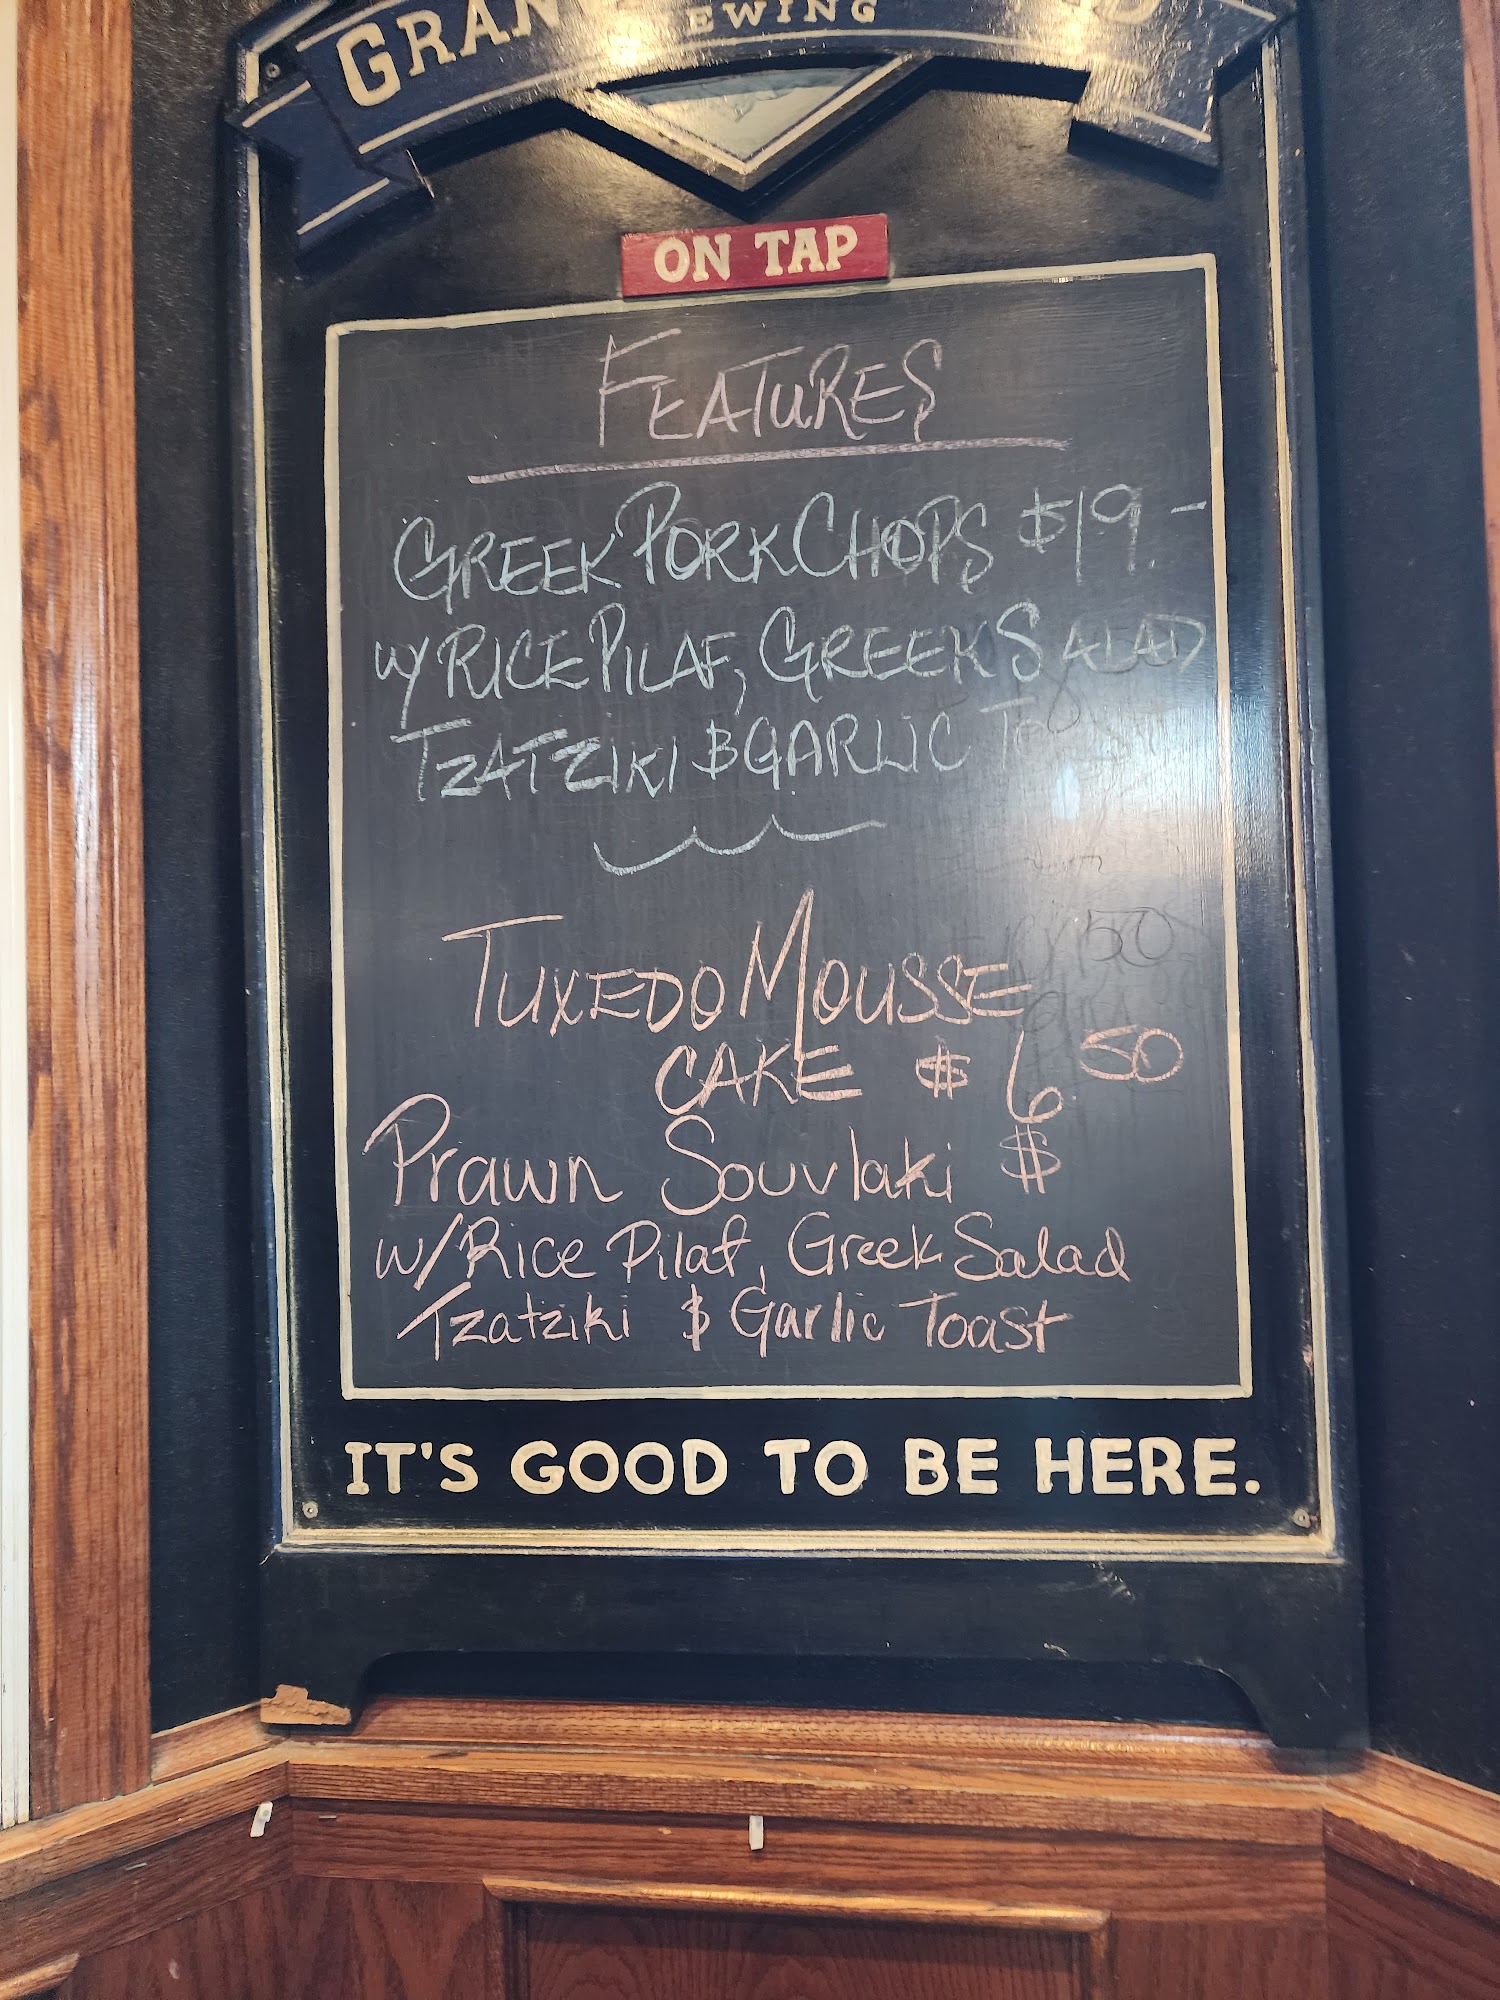 GRAN
EWING
ON TAP
FEATURES
GREEK PORK CHOPS $19.-
w/ RICE PILAF, GREEK SALAD
TZATZIKI & GARLIC TOAST
TUXEDO MOUSSE
CAKE $6.50
Prawn Souvlaki $
w/ Rice Pilaf, Greek Salad
Tzatziki & Garlic Toast
IT'S GOOD TO BE HERE.